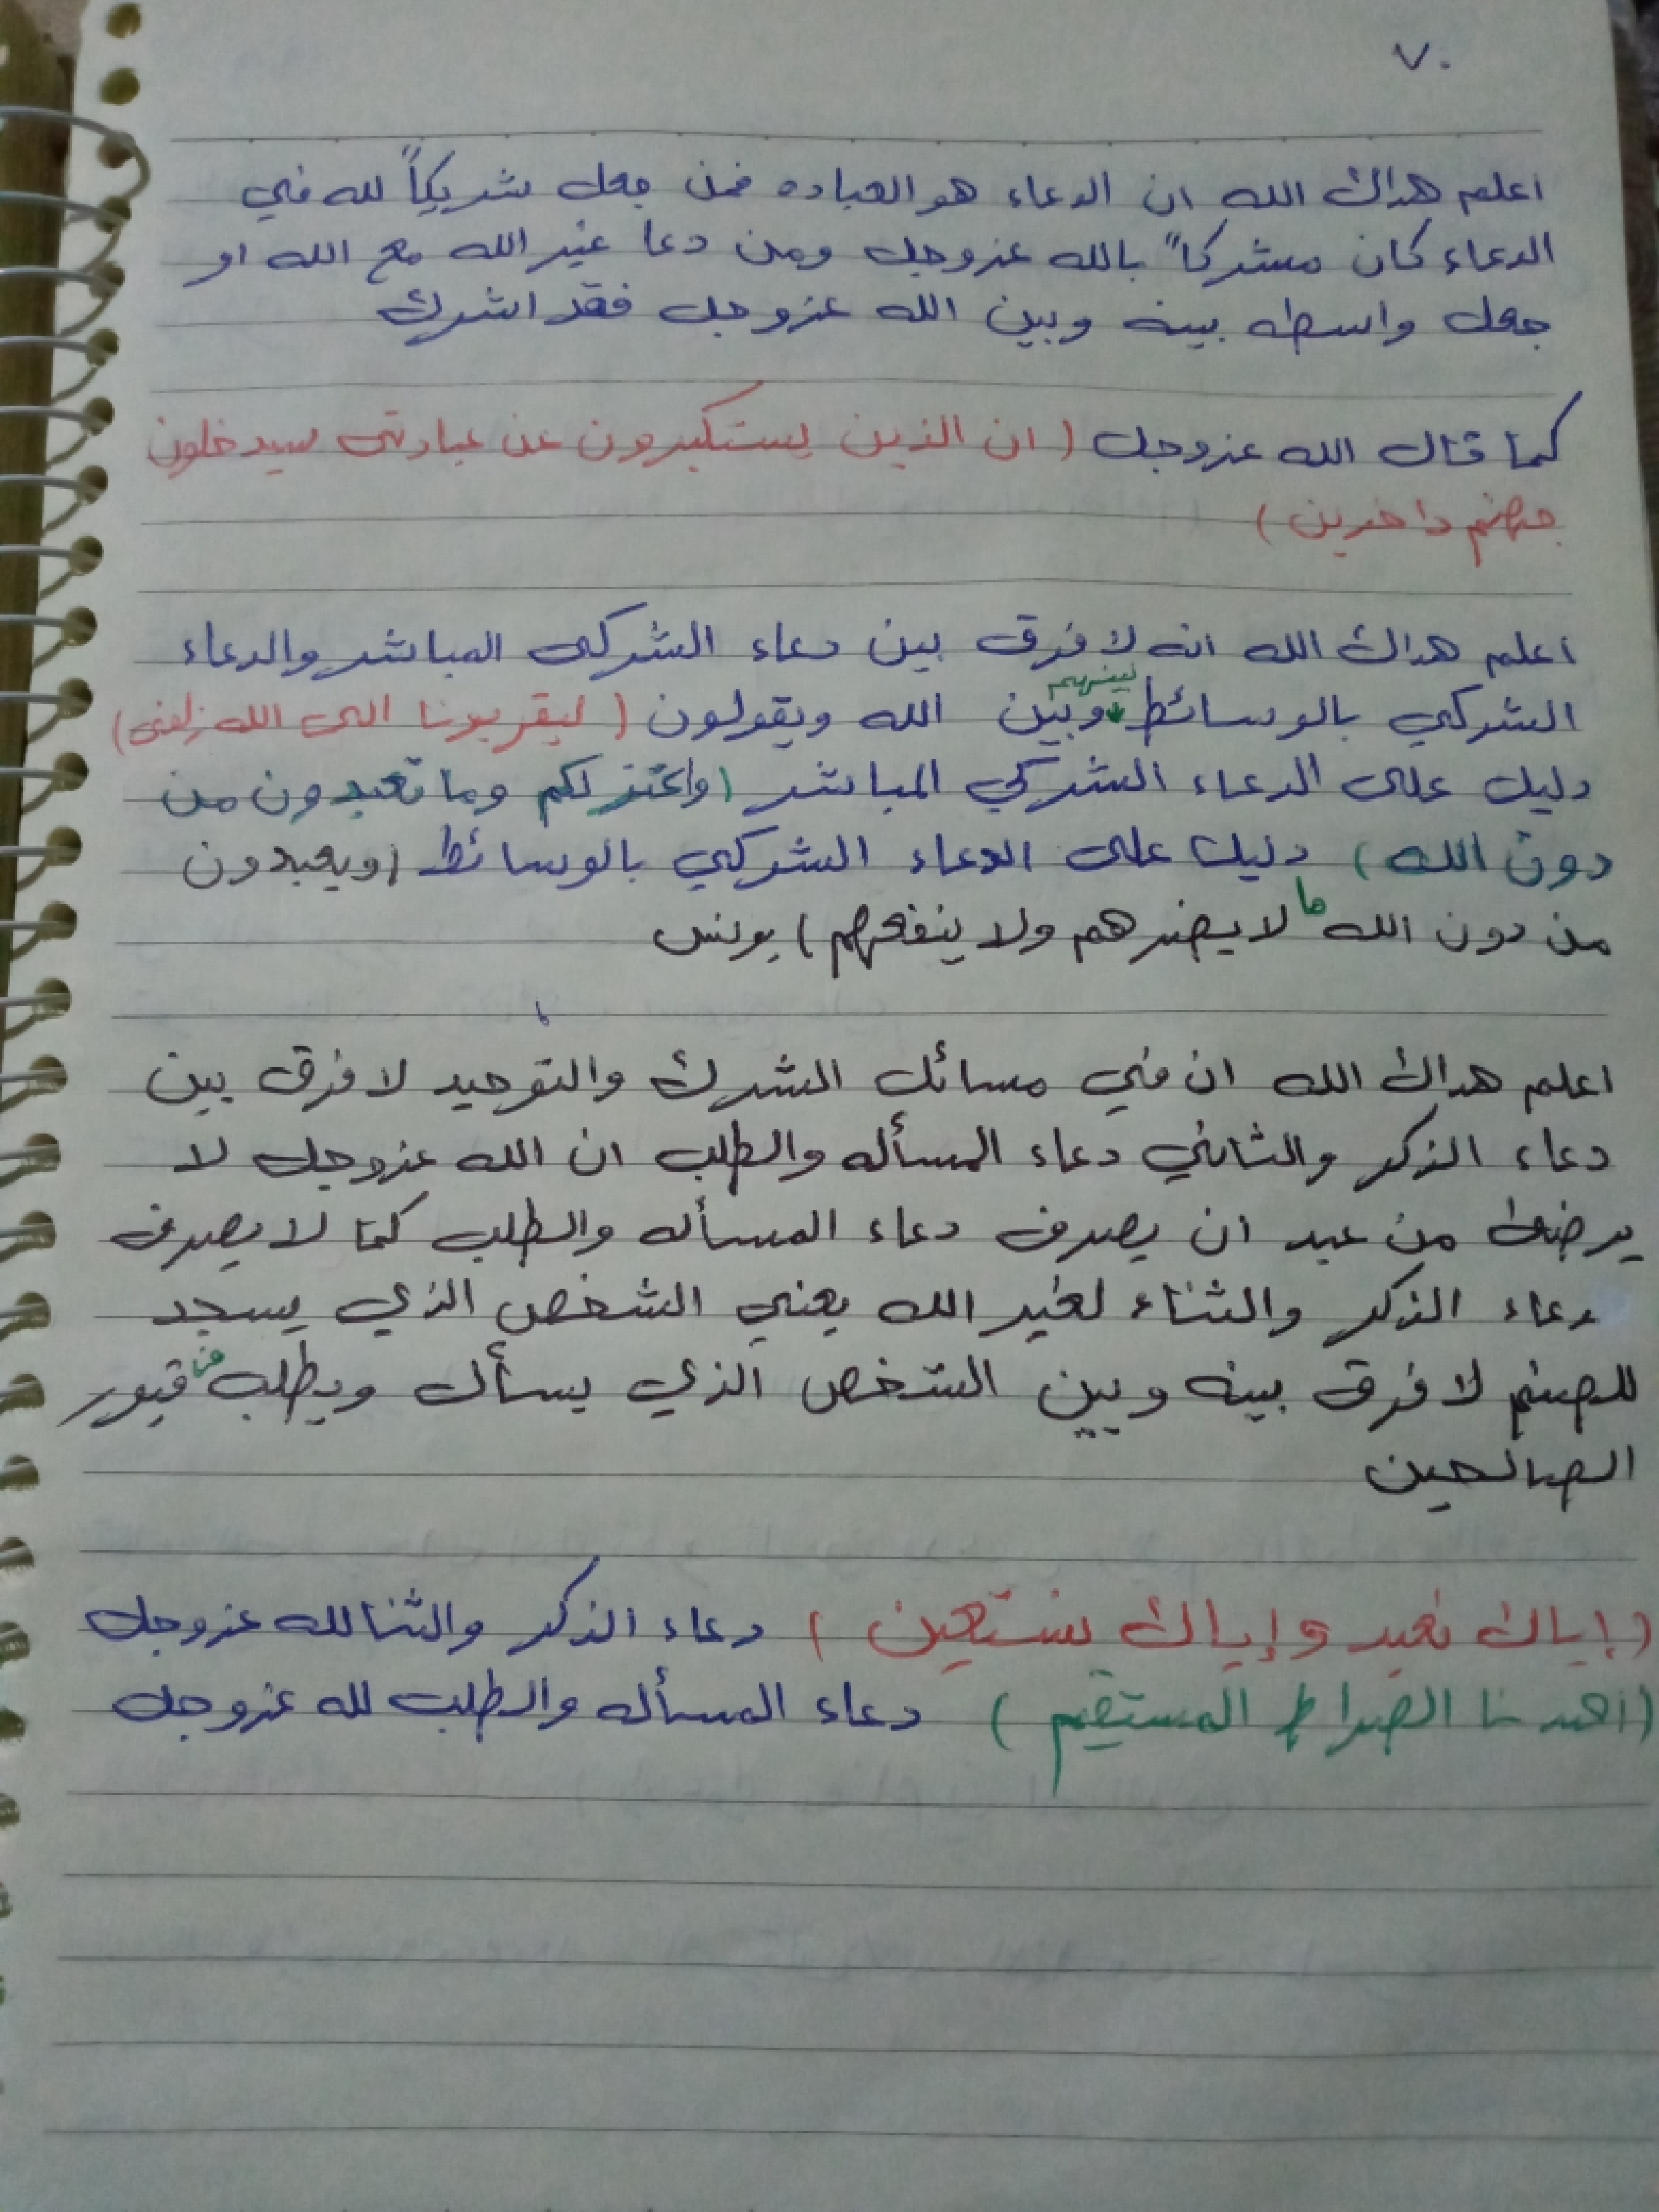 ٧٠
اعلم هداك الله ان الدعاء هو العباده فمن جعل شريكاً لله في
الدعاء كان مشركاً بالله عزوجل ومن دعا غير الله مع الله او
جعل واسطه بينه وبين الله عزوجل فقد اشرك
كما قال الله عزوجل (ان الذين يستكبرون عن عبادتى سيدخلون
جهنم داخرين)
اعلم هداك الله انه لا فرق بين دعاء الشركى المباشر والدعاء
الشركي بالوسائط بينهم وبين الله ويقولون (ليقربونا الى الله زلفى)
دليل على الدعاء الشركي المباشر (واعتزلكم وما تعبدون من
دون الله) دليل على الدعاء الشركي بالوسائط (ويعبدون
من دون الله ما لا يضرهم ولا ينفعهم) يونس
اعلم هداك الله ان في مسائل الشرك والتوحيد لا فرق بين
دعاء الذكر والثاني دعاء المسأله والطلب ان الله عزوجل لا
يرضى من عبد ان يصرف دعاء المسأله والطلب كما لا يصرف
دعاء الذكر والثناء لغير الله يعني الشخص الذي يسجد
للصنم لا فرق بينه وبين الشخص الذي يسأل ويطلب من قبور
الصالحين
(إياك نعبد وإياك نستعين) دعاء الذكر والثنا لله عزوجل
(اهدنا الصراط المستقيم) دعاء المسأله والطلب لله عزوجل